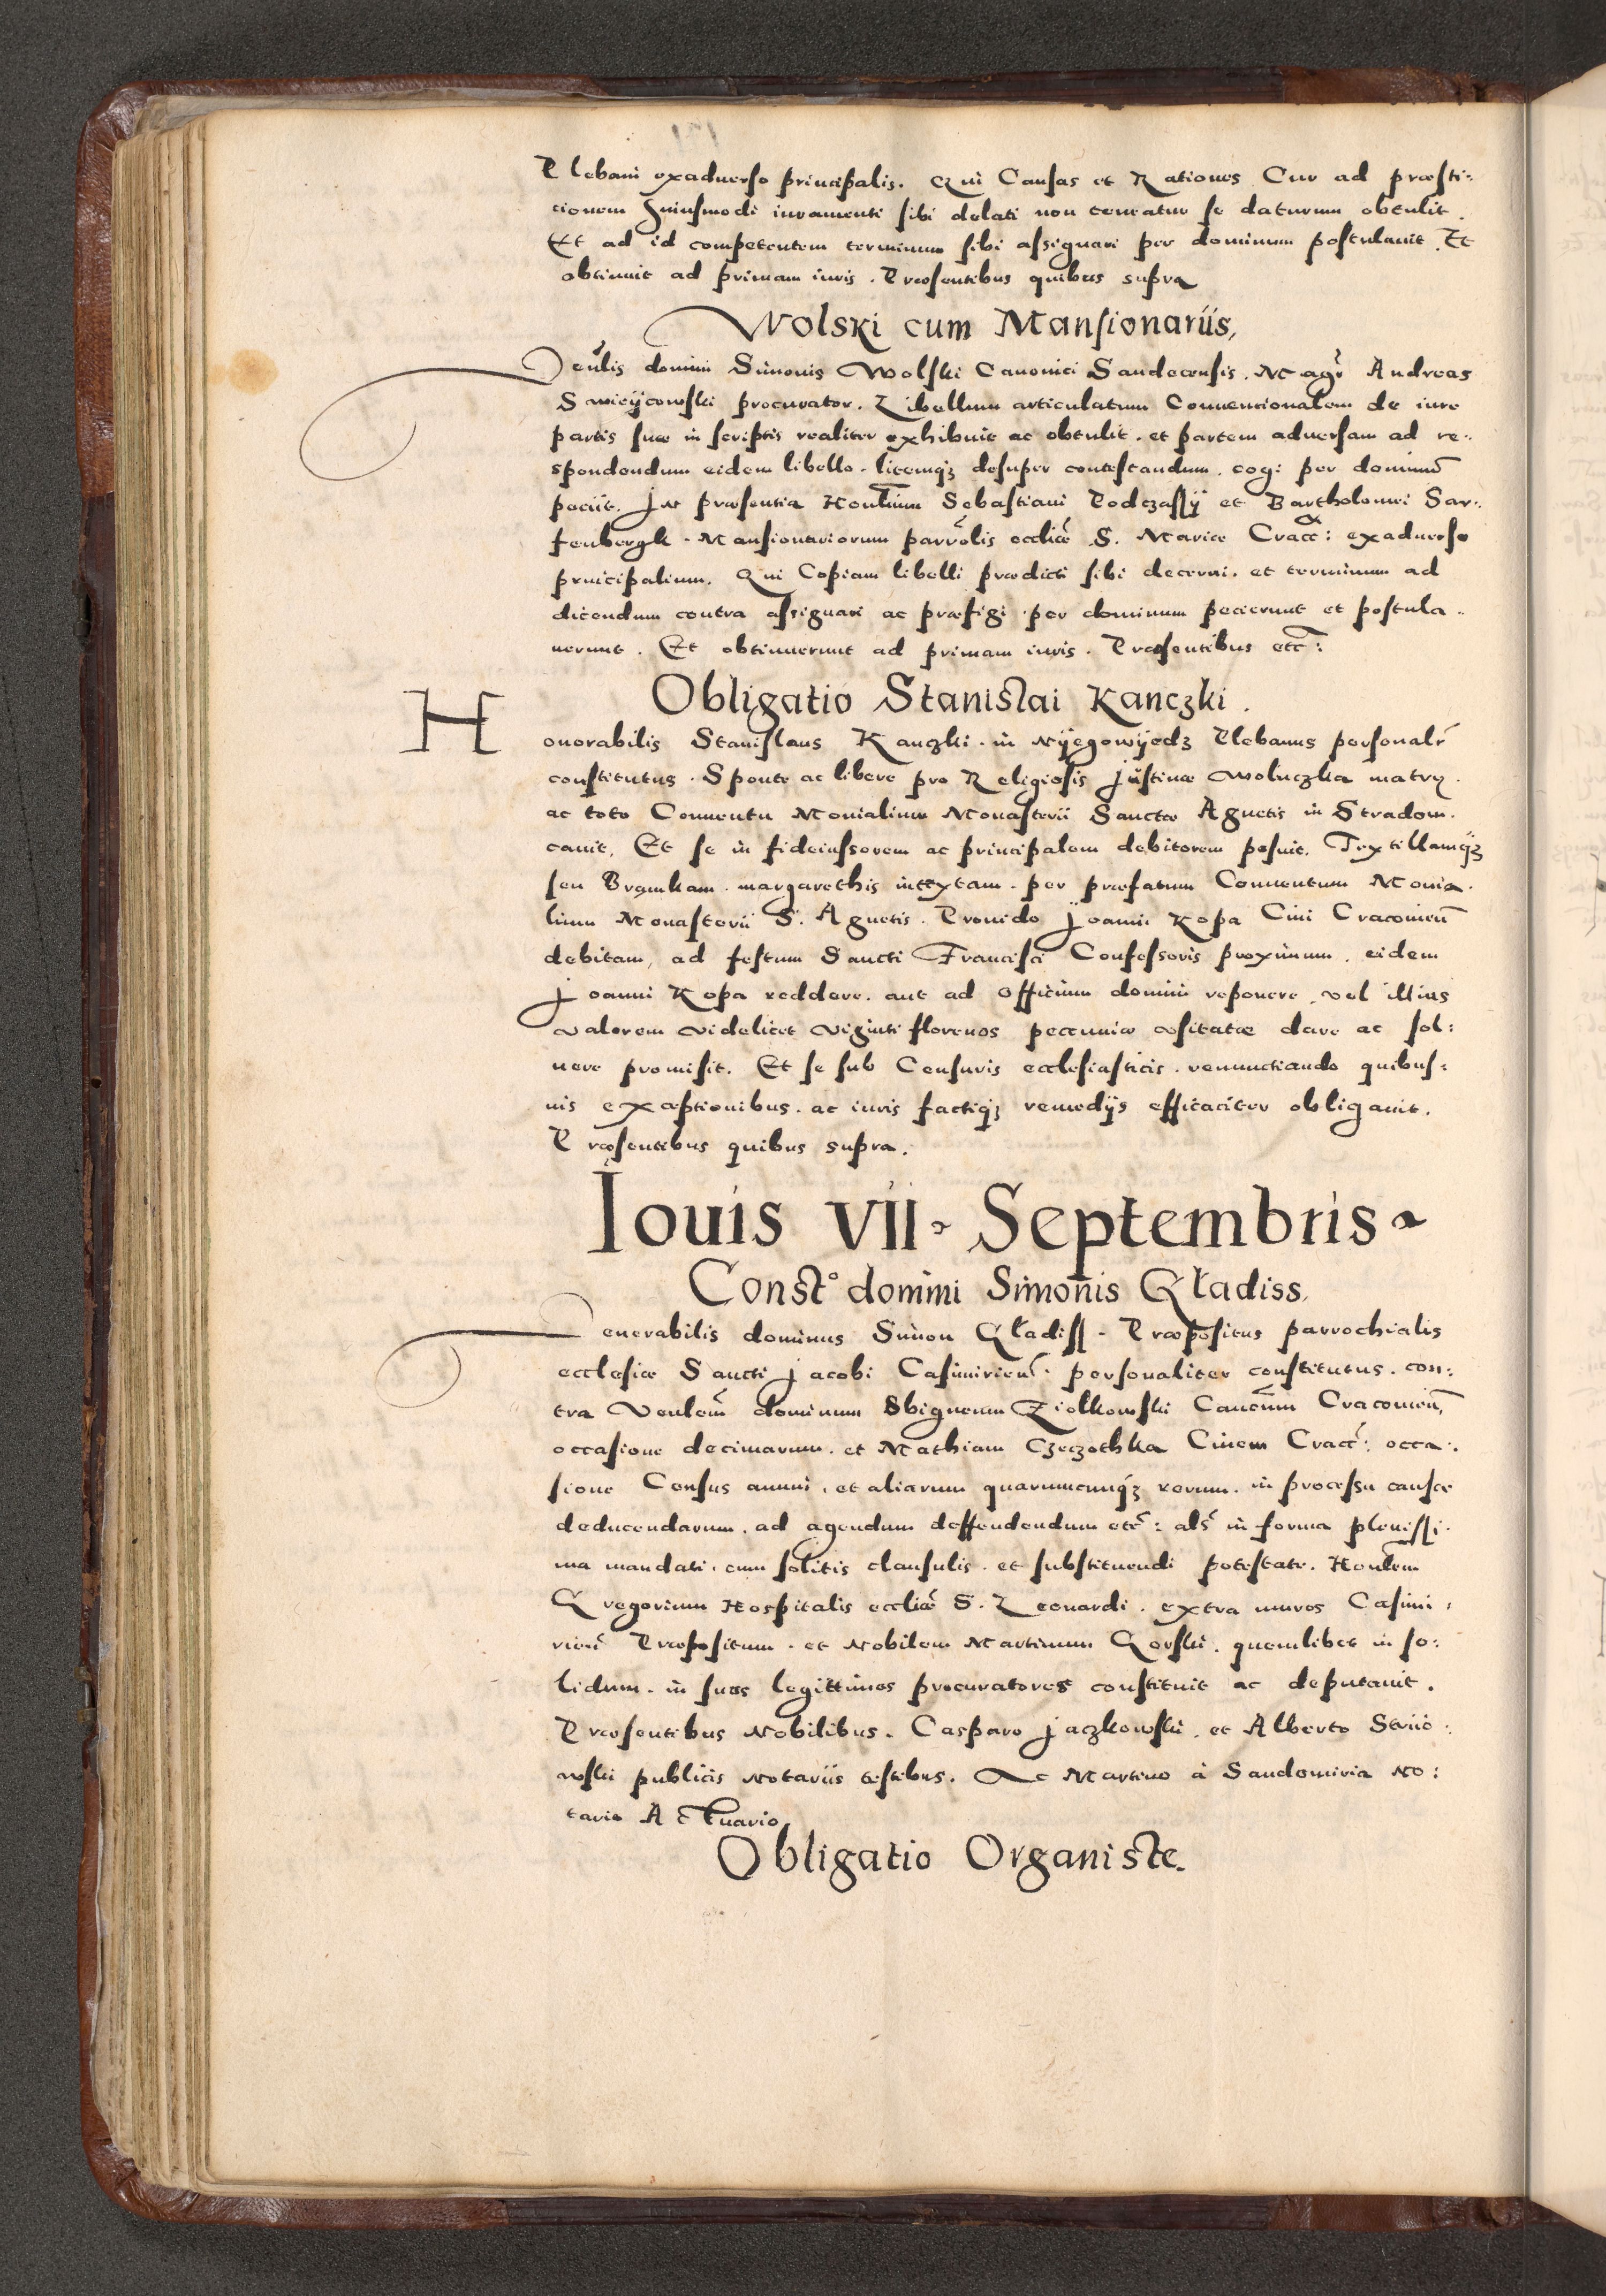 Plebani exaduerso principalis. Qui Causas et Rationes Cur ad præsti-
cionem huiusmodi iuramenti sibi delati non teneatur se daturum obtulit.
Et ad id competentem terminum sibi assignari per dominum postulauit. Et
obtinuit ad primam iuris. Præsentibus quibus supra
Wolski cum Mansionariis,
Venlis domini Simonis Wolski Canonici Sandecensis. Magr Andreas
procurator. Libellum articulatum Conuencionalem de iure
partis suæ in scriptis realiter exhibuit ac obtulit. et partem aduersam ad re-
spondendum eidem libello. litemqz desuper contestandum. cogi per dominum
peciit. In præsentia Honlium Sebastiani Podczassij et Bartholomei Sar-
fenbergk. Mansionariorum parrolis eccliæ S. Mariæ Cracc: exaduerso
principalium. Qui Copiam libelli prædicti sibi decerni. et terminum ad
dicendum contra assignari ac præfigi per dominum pecierunt et postula-
uerunt. Et obtinuerunt ad primam iuris. Præsentibus etc:
Obligatio Stanislai Kanczki.
Honorabilis Stanislaus Kanczki. in Nyegowyedz Plebanus personalr
constitutus. Sponte ac libere pro Religiosis Justinæ Woluczka matry.
ac toto Conuentu Monialium Monasterii Sanctæ Agnetis in Stradom.
cauit. Et se in fideiussorem ac principalem debitorem posuit. Textillamqz
seu Bramkam. margarethis intextam. per præfatum Conuentum Monia-
lium Monasterii S. Agnetis. Prouido Joanni Kopa Ciui Cracouien
debitam, ad festum Sancti Francisci Confessoris proximum. eidem
Joanni Kopa reddere. aut ad officium domini reponere. vel illius
valorem videlicet viginti florenos pecuniæ vsitatæ dare ac sol:
uere promisit. Et se sub Censuris ecclesiasticis. renunctiando quibus:
uis exceptionibus. ac iuris factiqz remedijs efficaciter obligauit.
Præsentibus quibus supra.
Iouis VII. Septembris
Constº domini Simonis Gładiss,
Venerabilis dominus Simon Gładiss. Præpositus parrochialis
ecclesiæ Sancti Jacobi Casimirien. personaliter constitutus. con:
tra Venlem dominum Sbigneum Ziolkowski Canonm Cracouien,
occasione decimarum. et Mathiam Czeczothka Ciuem Cracc: occa-
sione Census annui. et aliarum quarumcunqz rerum. in processu causæ
deducendarum. ad agendum deffendendum etc: als in forma plenissi-
ma mandati. cum solitis clausulis. et substituendi potestate. Honlem
Gregorium Hospitalis eccliæ S. Leonardi. extra muros Casimi:
rien Præpositum. et Nobilem Martinum Gorski. quemlibet in so:
lidum. in suos legittimos procuratores constituit ac deputauit.
Præsentibus Nobilibus. Casparo Jaczkowski. et Alberto Strijo-
wski publicis Notariis testibus. Ac Martino à Sandomiria No:
tario Actuario
Obligatio Organiste.